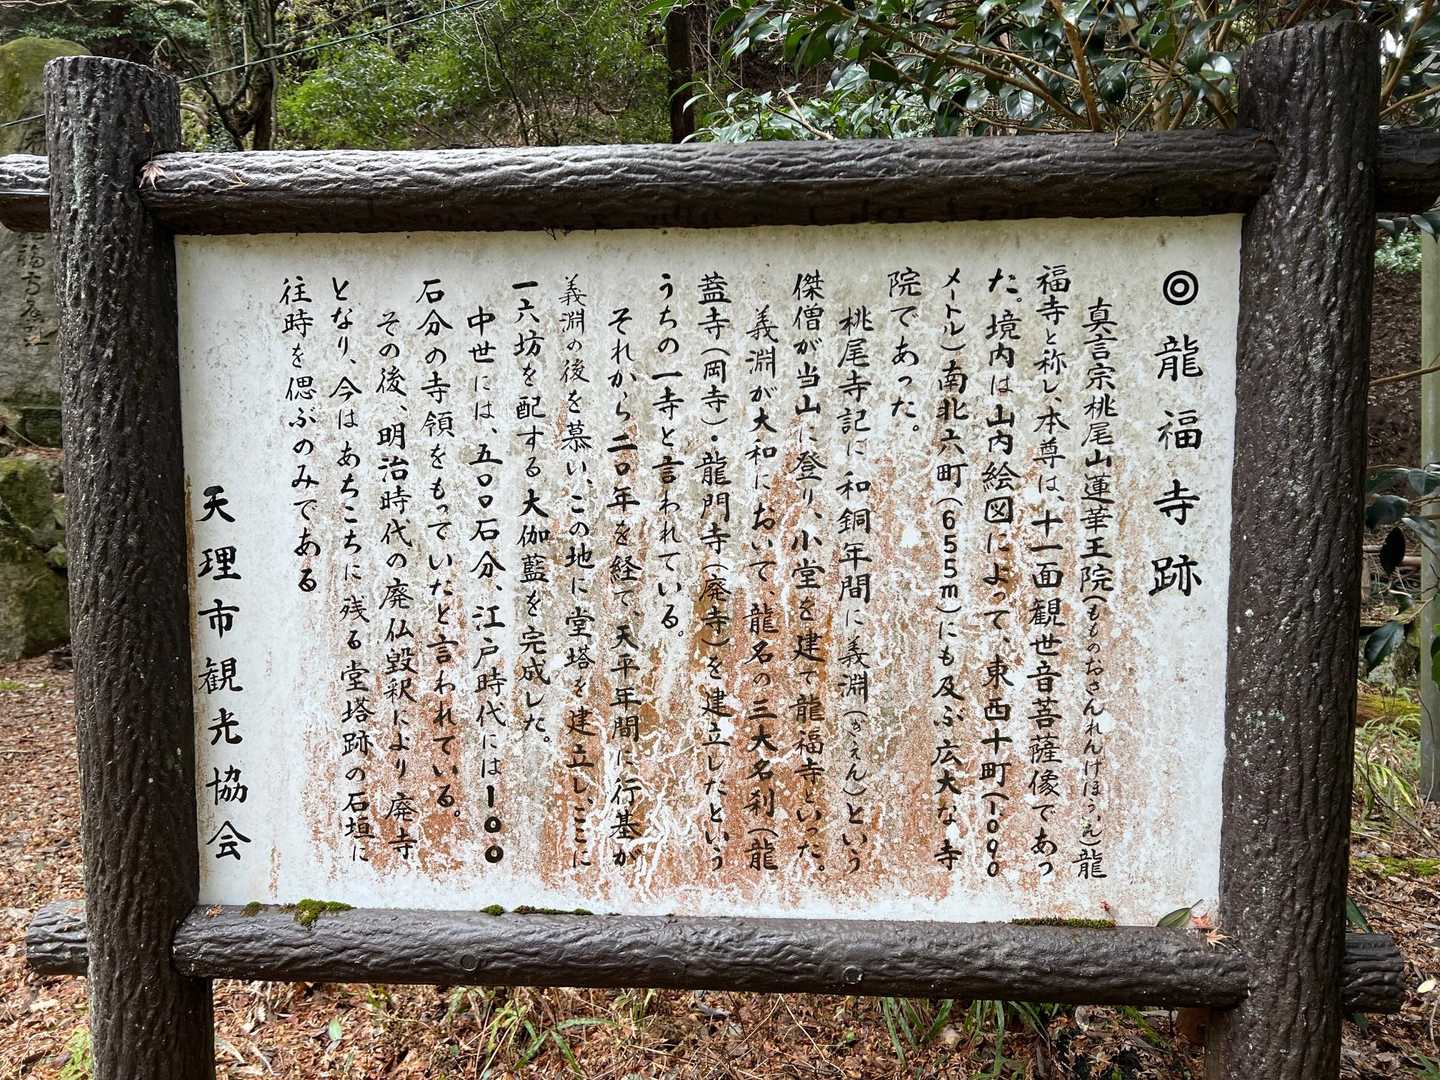 ◎龍福寺跡
真言宗桃尾山蓮華王院(もものおさんれんげほういん)龍
福寺と称し、本尊は、十一面観世音菩薩像であっ
た。境内は山内絵図によって、東西十町(1090
メートル)南北六町(655m)にも及ぶ広大な寺
院であった。
桃尾寺記に和銅年間に義淵(ぎえん)という
傑僧が当山に登り、小堂を建て龍福寺といった。
義淵が大和において、龍名の三大名刹(龍
蓋寺(岡寺)・龍門寺(廃寺)を建立したという
うちの一寺と言われている。
それから二〇年を経て、天平年間に行基が
義淵の後を慕い、この地に堂塔を建立し、ここに
一六坊を配する大伽藍を完成した。
中世には、五〇〇石分、江戸時代には一〇〇
石分の寺領をもっていたと言われている。
その後、明治時代の廃仏毀釈により廃寺
となり、今はあちこちに残る堂塔跡の石垣に
往時を偲ぶのみである
天理市観光協会